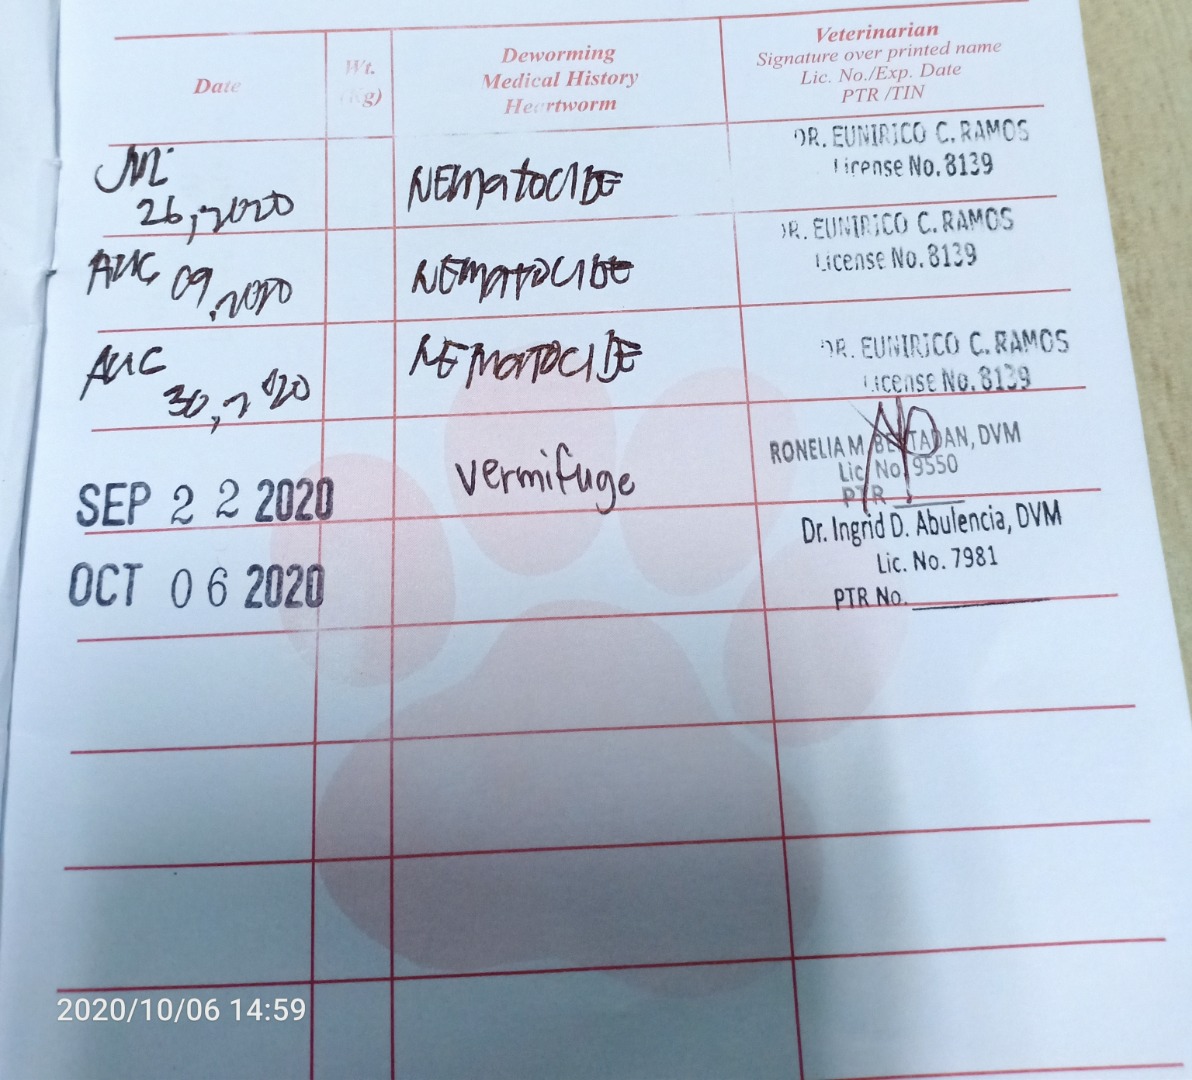 Date
Wt.
(Kg)
Deworming
Medical History
Heartworm
Veterinarian
Signature over printed name
Lic. No./Exp. Date
PTR /TIN
26, 2020
NEmatoCIDE
DR. EUNIRICO C. RAMOS
License No. 8139
AUG 09, 2020
NEMATOCIDE
DR. EUNIRICO C. RAMOS
License No. 8139
AUG
30, 2020
NEMATOCIDE
DR. EUNIRICO C. RAMOS
License No. 8139
SEP 22 2020
vermifuge
RONELIA M. DVM
Lic. No. 9550
PTR
OCT 06 2020
Dr. Ingrid D. Abulencia, DVM
Lic. No. 7981
PTR No.
2020/10/06 14:59